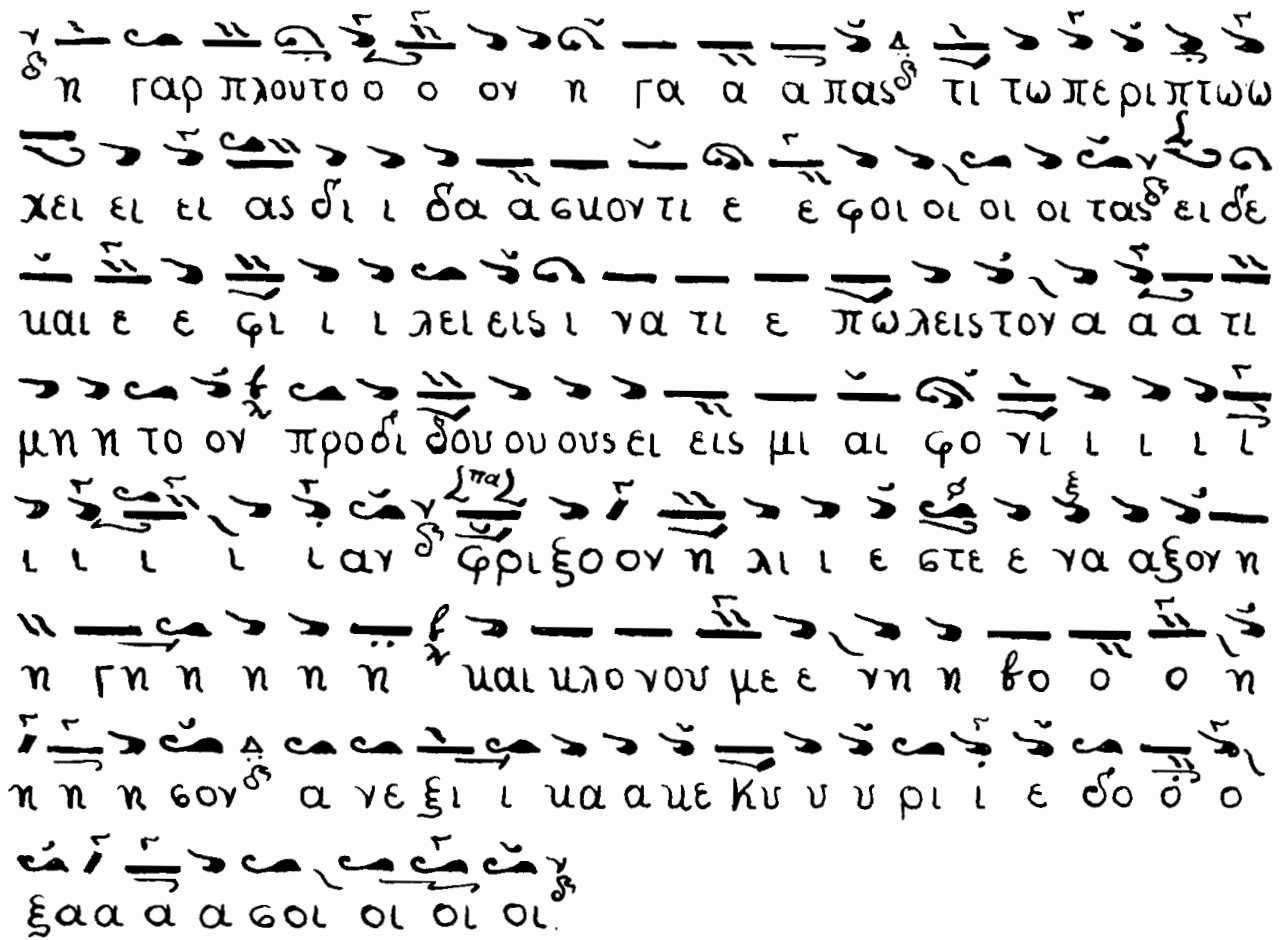 η γαρ πλουτο ο ο ον η γα α α πας τι τω περι πτωω
χει ει ει ας δι ι δα α σκον τι ε ε φοι οι οι οι τας ει δε
και ε ε φι ι ι λει εις ι να τι ε πω λεις τον α α α τι
μη η το ον προδι δου ου ους ει εις μι αι φο νι ι ι ι ι
ι ι ι ι ι αν φριξο ον η λι ι ε στε ε να αξον η
η γη η η η η και κλο νου με ε νη η βο ο ο η
η η η σον α νε ξι ι κα α κε Κυ υ υ ρι ι ε δο ο ο
ξα α α α σοι οι οι οι.